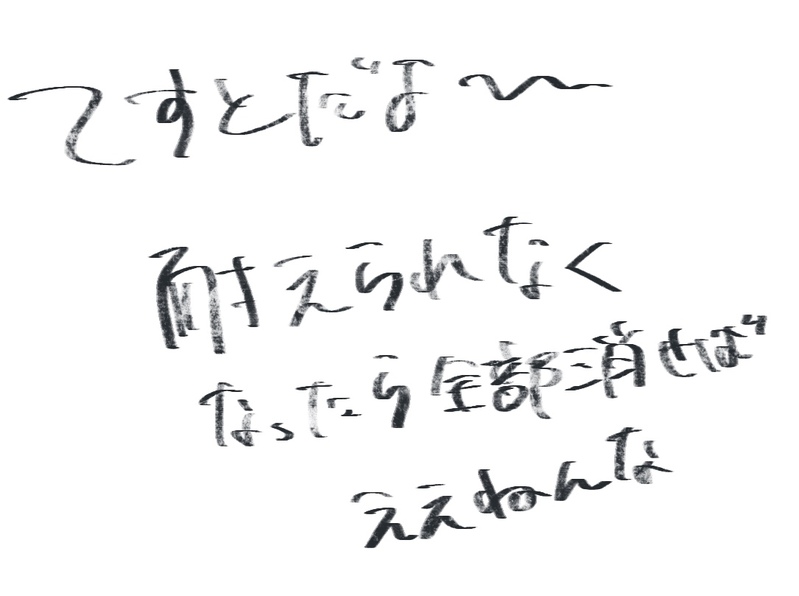 てすとだよ〜
耐えられなく
なったら全部消せば
ええねんな